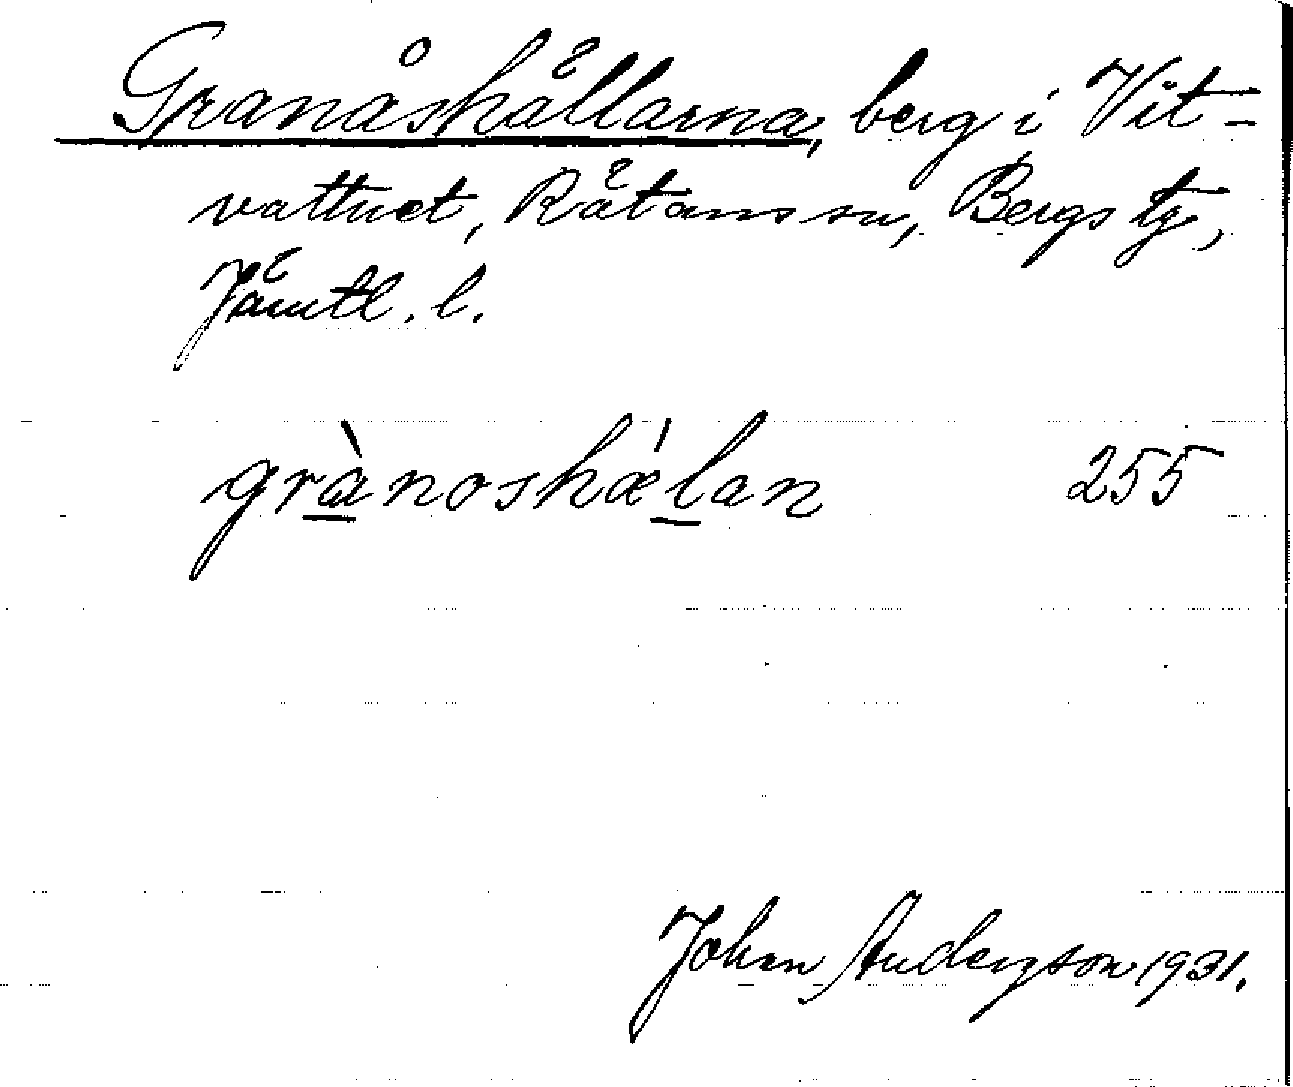 Granåshällarna, berg i Vit-
vattnet, Rätans sn, Bergs tg,
Jämtl. l.
grànoshǽlan 255
Johan Anderzson 1931.